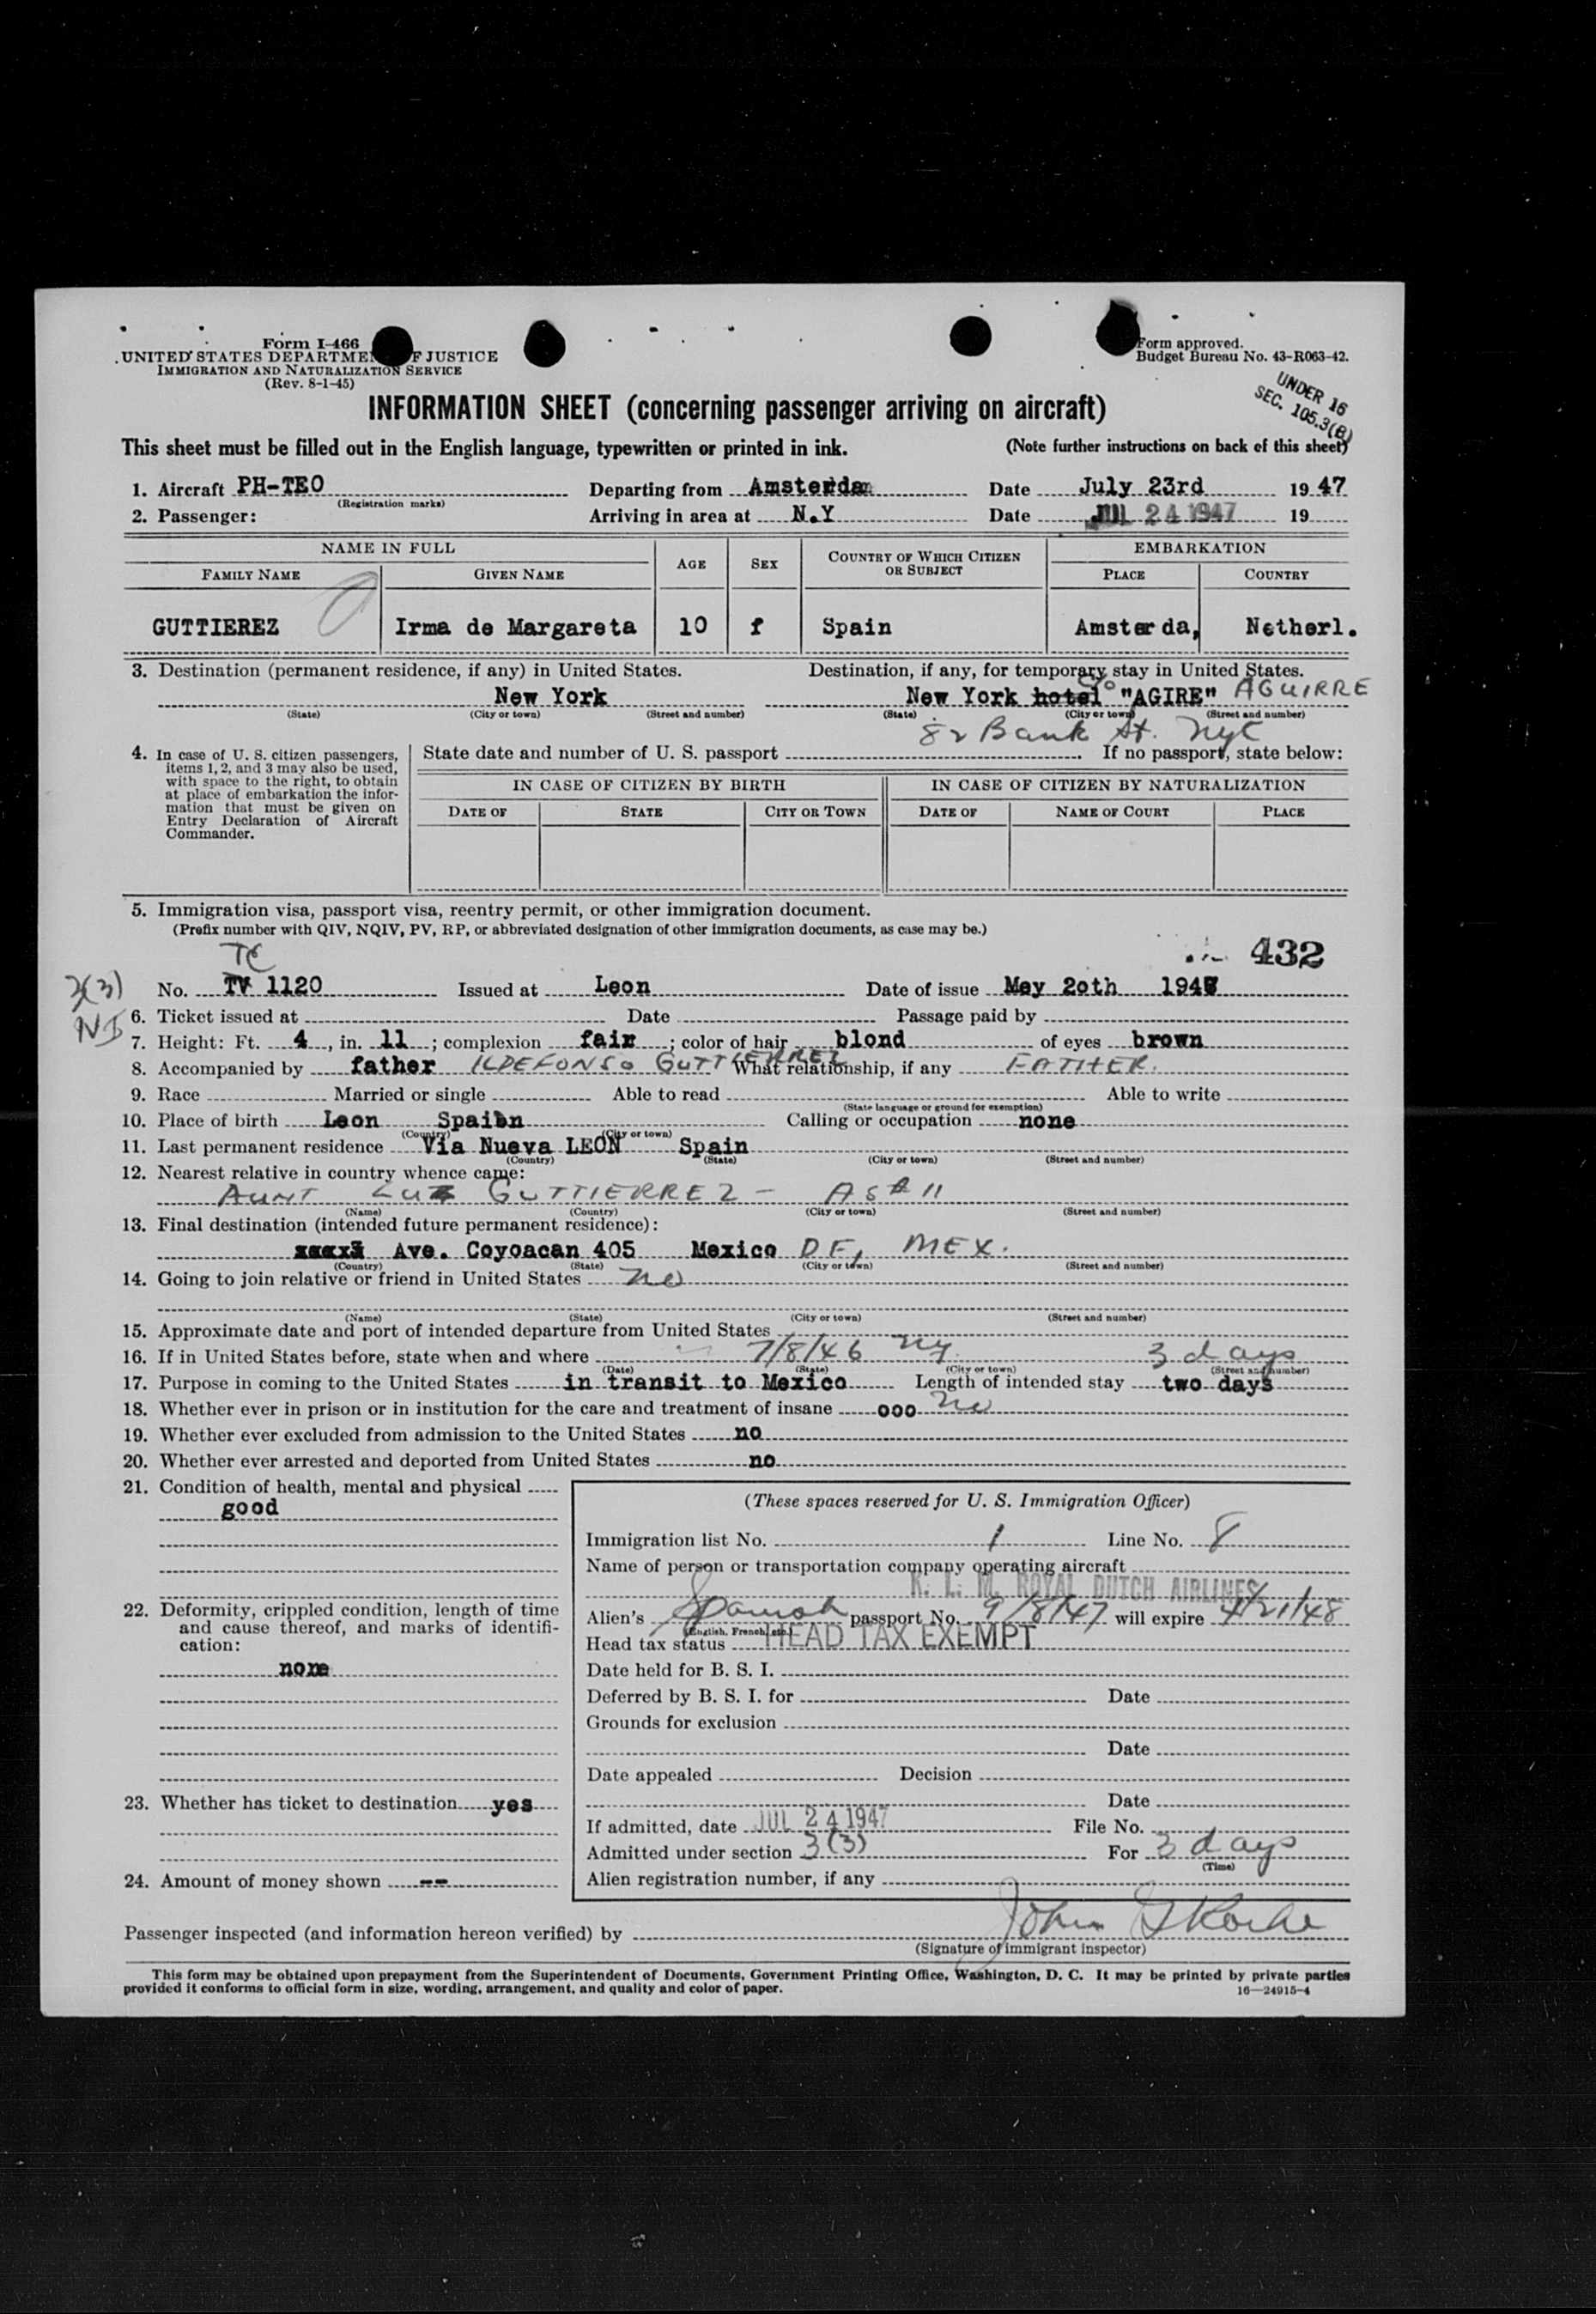 Form I-466
UNITED STATES DEPARTMENT OF JUSTICE
IMMIGRATION AND NATURALIZATION SERVICE
(Rev. 8-1-45)
Form approved.
Budget Bureau No. 43-R063-42.
UNDER 16
SEC. 105.3(B)
INFORMATION SHEET (concerning passenger arriving on aircraft)
This sheet must be filled out in the English language, typewritten or printed in ink. (Note further instructions on back of this sheet)
1. Aircraft PH-TEO Departing from Amsterdam Date July 23rd 1947
(Registration marks)
2. Passenger: Arriving in area at N.Y Date JUL 24 1947 19
NAME IN FULL AGE SEX COUNTRY OF WHICH CITIZEN OR SUBJECT EMBARKATION
FAMILY NAME GIVEN NAME PLACE COUNTRY
GUTTIEREZ Irma de Margareta 10 f Spain Amsterda, Netherl.
3. Destination (permanent residence, if any) in United States. Destination, if any, for temporary stay in United States.
New York New York hotel c/o "AGIRE" AGUIRRE
(State) (City or town) (Street and number) (State) (City or town) (Street and number)
82 Bank St. NYC
4. In case of U. S. citizen passengers, items 1, 2, and 3 may also be used, with space to the right, to obtain at place of embarkation the information that must be given on Entry Declaration of Aircraft Commander.
State date and number of U. S. passport If no passport, state below:
IN CASE OF CITIZEN BY BIRTH IN CASE OF CITIZEN BY NATURALIZATION
DATE OF STATE CITY OR TOWN DATE OF NAME OF COURT PLACE
5. Immigration visa, passport visa, reentry permit, or other immigration document.
(Prefix number with QIV, NQIV, PV, RP, or abbreviated designation of other immigration documents, as case may be.)
TC 432
3(3) No. TV 1120 Issued at Leon Date of issue May 2oth 1947
NI 6. Ticket issued at Date Passage paid by
7. Height: Ft. 4, in. 11; complexion fair; color of hair blond of eyes brown
8. Accompanied by father ILDEFONSO GUTTIERREZ What relationship, if any FATHER.
9. Race Married or single Able to read Able to write
(State language or ground for exemption)
10. Place of birth Leon Spain Calling or occupation none
(Country) (City or town)
11. Last permanent residence Via Nueva LEON Spain
(Country) (State) (City or town) (Street and number)
12. Nearest relative in country whence came:
AUNT LUZ GUTTIERREZ - AS # 11
(Name) (Country) (City or town) (Street and number)
13. Final destination (intended future permanent residence):
Ave. Coyoacan 405 Mexico DF, MEX.
(Country) (State) (City or town) (Street and number)
14. Going to join relative or friend in United States no
(Name) (State) (City or town) (Street and number)
15. Approximate date and port of intended departure from United States
16. If in United States before, state when and where 7/8/46 NY 3 days
(Date) (State) (City or town) (Street and number)
17. Purpose in coming to the United States in transit to Mexico Length of intended stay two days
18. Whether ever in prison or in institution for the care and treatment of insane ooo no
19. Whether ever excluded from admission to the United States no
20. Whether ever arrested and deported from United States no
21. Condition of health, mental and physical
good
22. Deformity, crippled condition, length of time and cause thereof, and marks of identification:
none
23. Whether has ticket to destination yes
24. Amount of money shown --
(These spaces reserved for U. S. Immigration Officer)
Immigration list No. 1 Line No. 8
Name of person or transportation company operating aircraft
K. L. M. ROYAL DUTCH AIRLINES
Alien's Spanish passport No. 9/8/47 will expire 4/21/48
(English, French, etc.)
Head tax status HEAD TAX EXEMPT
Date held for B. S. I.
Deferred by B. S. I. for Date
Grounds for exclusion
Date
Date appealed Decision
Date
If admitted, date JUL 24 1947 File No.
Admitted under section 3(3) For 3 days
(Time)
Alien registration number, if any
Passenger inspected (and information hereon verified) by John
(Signature of immigrant inspector)
This form may be obtained upon prepayment from the Superintendent of Documents, Government Printing Office, Washington, D. C. It may be printed by private parties
provided it conforms to official form in size, wording, arrangement, and quality and color of paper. 16—24915-4